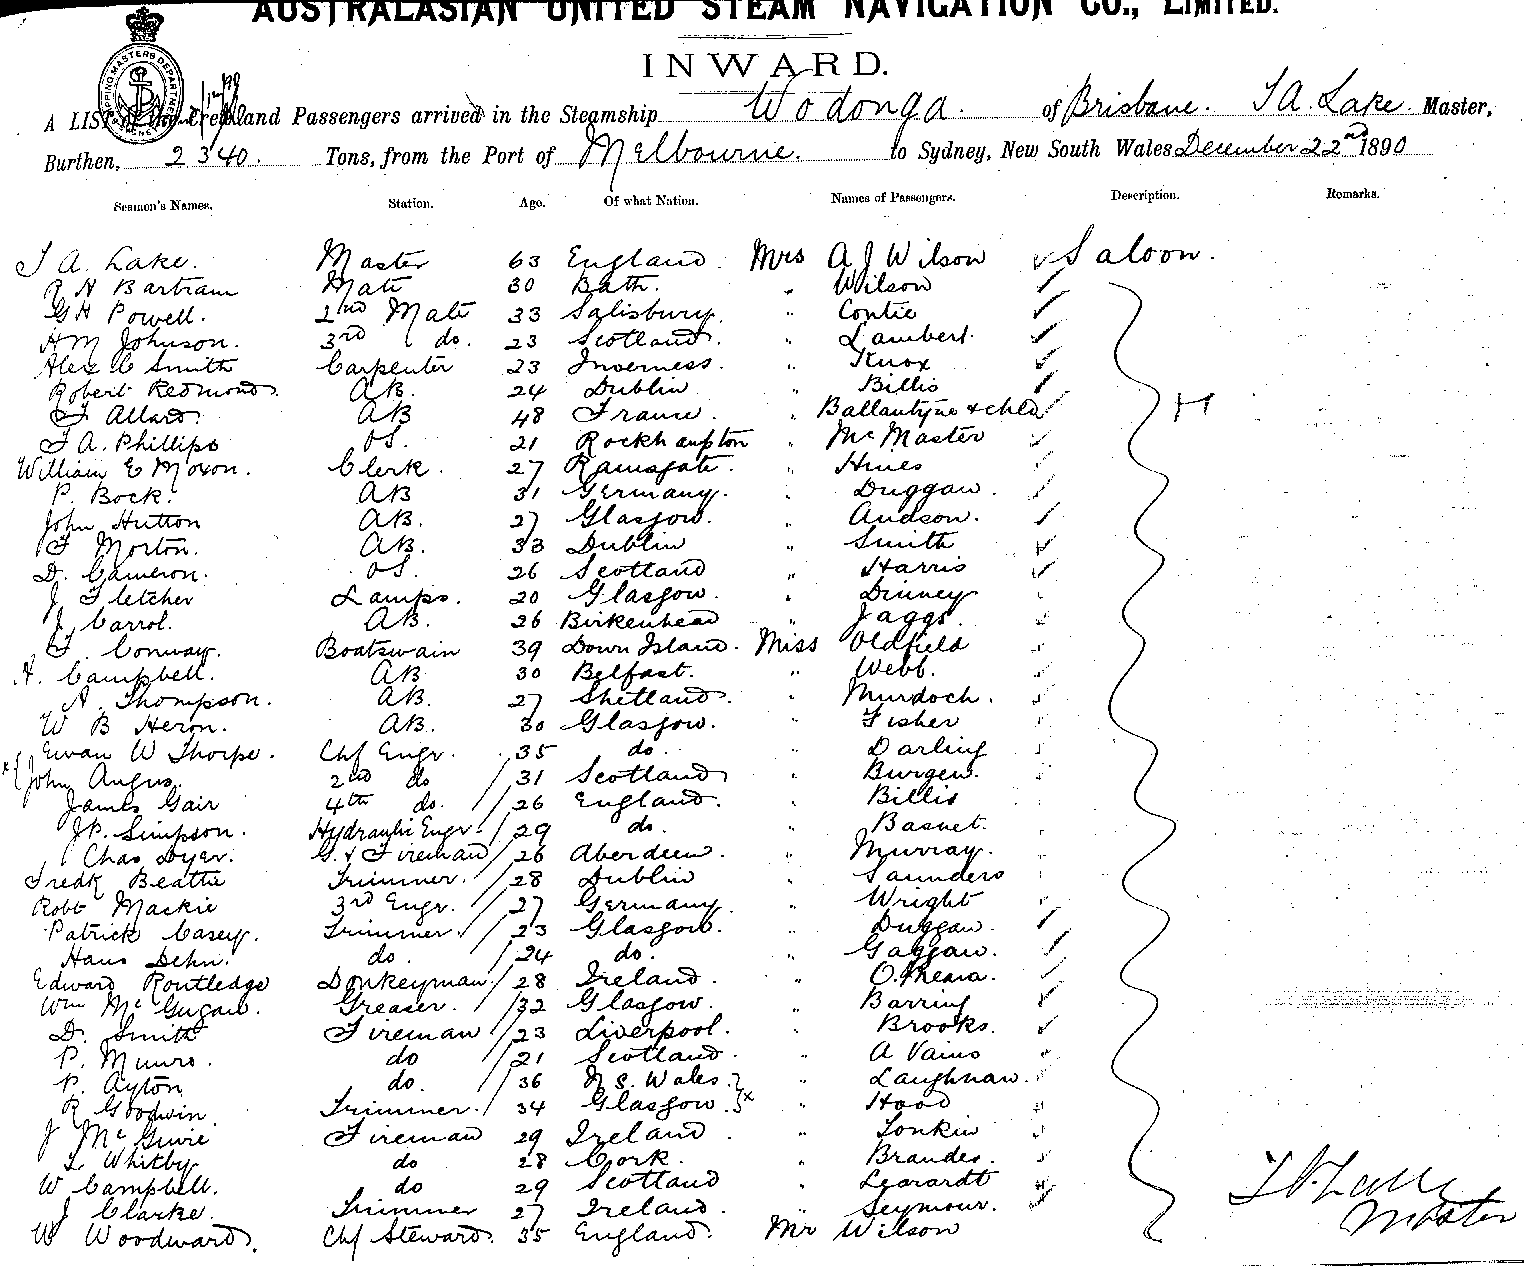 AUSTRALASIAN UNITED STEAM NAVIGATION CO., LIMITED.
INWARD.
A LIST of the Crew and Passengers arrived in the Steamship Wodonga. of Brisbane. T A. Lake. Master,
Burthen, 2340. Tons, from the Port of Melbourne. to Sydney, New South Wales December 22nd 1890
Seamen's Names. Station. Age. Of what Nation. Names of Passengers. Description. Remarks.
T A. Lake. Master 63 England. Mrs A J Wilson Saloon.
R H Bartram Mate 30 Bath. " Wilson
G H Powell. 2nd Mate 33 Salisbury. " Contie
H M Johnson. 3rd do. 23 Scotland. " Lambert.
Alex C Smith Carpenter 23 Inverness. " Knox
Robert Redmond. AB. 24 Dublin " Billis
F Allard. AB 48 France. " Ballantyne & chld H
F A. Phillips OS. 21 Rockhampton " McMaster
William E Moxon. Clerk. 27 Ramsgate. " Hines
P. Bock. AB 31 Germany. " Duggan.
John Hutton AB. 27 Glasgow. " Audson.
F Morton. AB. 33 Dublin " Smith
D. Cameron. OS. 26 Scotland " Harris
J Fletcher Lamps. 20 Glasgow. " Dinney
J Carrol. AB. 26 Birkenhead " Jaggs.
F. Conway. Boatswain 39 Down Island. Miss Oldfield
A. Campbell. AB 30 Belfast. " Webb.
A. Thompson. AB. 27 Shetland. " Murdoch.
W B Heron. AB. 30 Glasgow. " Fisher
Ewan W Thorpe. Chf Engr. 35 do. " Darling
x{ John Angus. 2nd do 31 Scotland " Burgen.
James Gair 4th do. 26 England. " Billis
J P. Simpson. Hydraulic Engr. 29 do. " Basnet.
Chas Dyer. G. & Fireman 26 Aberdeen. " Murray.
Fredk Beattie Trimmer. 28 Dublin " Saunders
Robt Mackie 3rd Engr. 27 Germany. " Wright
Patrick Casey. Trimmer. 23 Glasgow. " Duggan.
Hans Dehn. do. 24 do. " Gaggan.
Edward Routledge Donkeyman. 28 Ireland. " O.Meara.
Wm McGugan. Greaser. 32 Glasgow. " Barring
D. Smith Fireman 23 Liverpool. " Brooks.
P. Munro. do 21 Scotland. " A Vains
P. Ayton do. 36 N S. Wales. " Laughnan.
R Goodwin. Trimmer. 34 Glasgow. }x " Hood
J McGuire Fireman 29 Ireland. " Tonkin
L Whitby do 28 Cork. " Brandes.
W Campbell. do 29 Scotland " Learardt
J Clarke. Trimmer 27 Ireland. " Seymour.
W Woodward. Chf Steward. 35 England. Mr Wilson
T A. Lake
Master